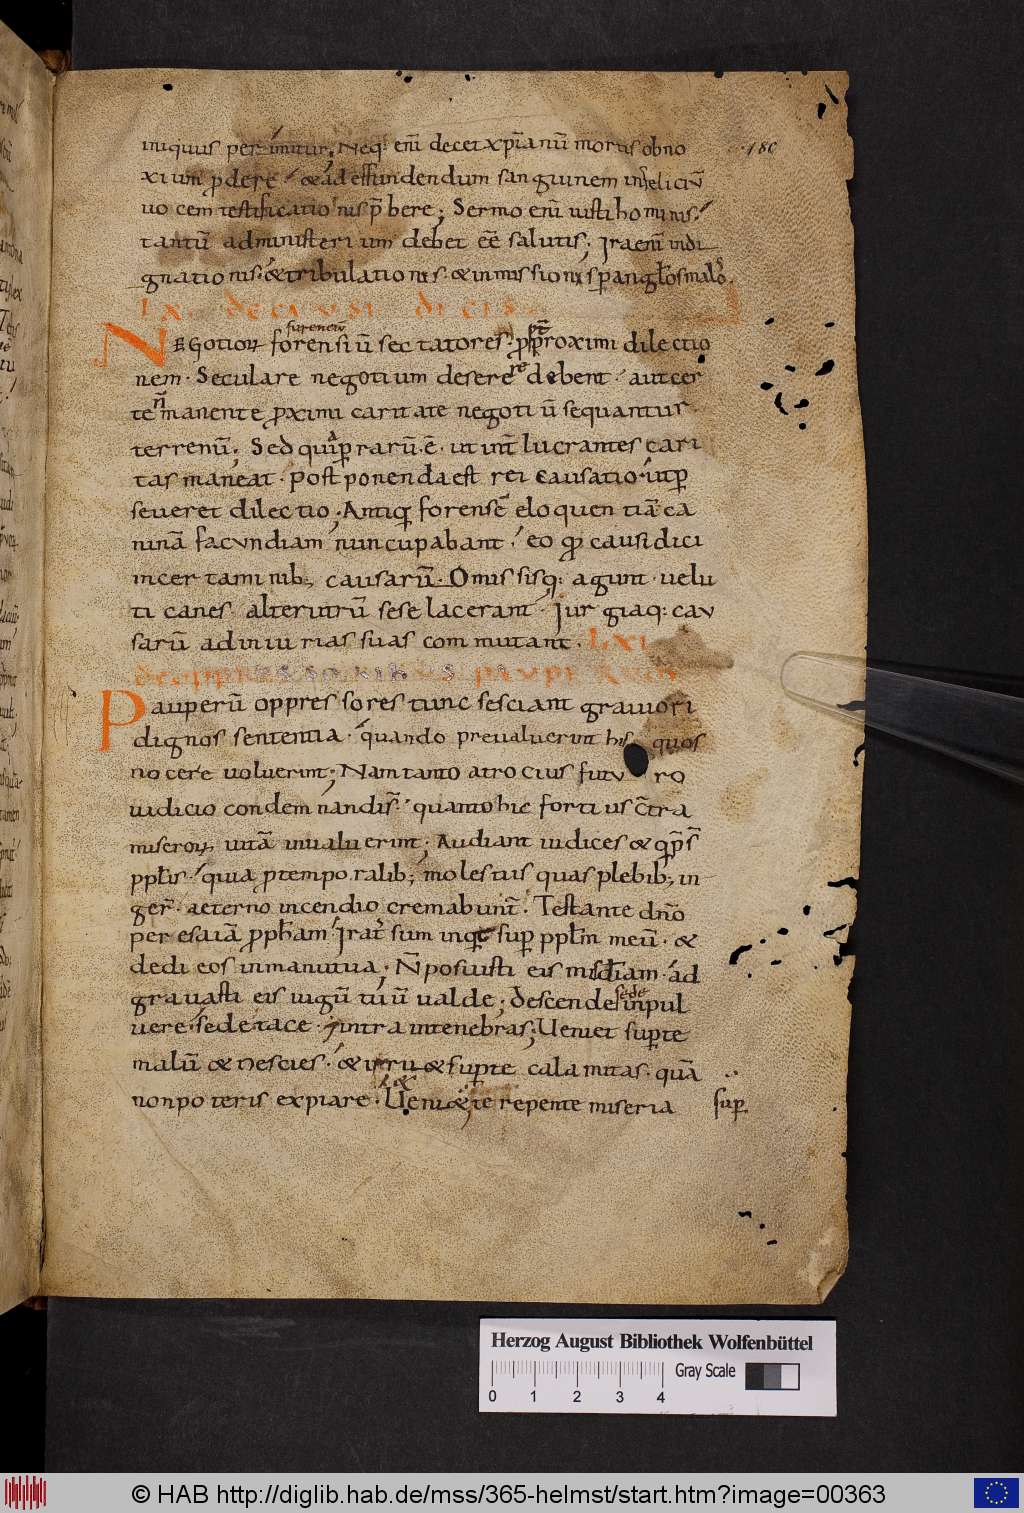 iniquus perimitur; Neq: eni decet xp̄ianū mortis obno
180
xium ꝓdere. & ad effundendum sanguinem infeliciū
uocem testificationis p̄bere; Sermo enī iusti hominis.
tantū administerium debet eē salutis; Ira enī indi
gnationis. & tribulationis. & inmissionis p̱ angłos malos.
LX. DE CAUSIDICIS.
furensiū
NEGOTIORꝜ forensiū sectatores. ꝓpt̄ ꝓximi dilectio
nem. Seculare negotium deserere debent. aut cer
te n̄ manente ꝓximi caritate negotiū sequantur
terrenū; Sed quia p̱rarū. ē. ut int̄ lucrantes cari
tas maneat. postponenda est rei causatio. ut p̱
seueret dilectio; Antiqi forensē eloquentiā ca
ninā facundiam nuncupabant. eo qđ causidici
in certaminib; causarū. Omissisq: agunt. uelu
ti canes alterutrū sese lacerant. Iurgiaq: cau
sarū ad iniurias suas commutant. LXI
DE OPPRESSORIBUS PAUPERUM
Pauperū oppressores tunc se sciant grauiori
dignos sententia. quando preualuerint his quos
nocere uoluerint; Nam tanto atrocius futuro
iudicio condemnandis. quanto hic fortius c̄tra
miseroꝝ uitā inualuerint; Audiant iudices & qp̄s̄
ppłis. quia ꝓ temporalib; molestiis quas plebib; in
ger̄. aeterno incendio cremabunt̄. Testante dn̄o
per esaiā ꝓph̄am. Irat' sum inqt sup̱ ppłm meū. &
dedi eos in manu tua; N̄ posuisti eis mis̄diam. ad
grauasti eis iugū tuū ualde; descende sede in pul
uere. sede tace. intra in tenebras; Ueniet sup̱ te
malū & nescies. & irru & sup̱ te calamitas. quā
non poteris expiare. Ueni & te repente miseria
sup̱.
Herzog August Bibliothek Wolfenbüttel
0 1 2 3 4
Gray Scale
© HAB http://diglib.hab.de/mss/365-helmst/start.htm?image=00363